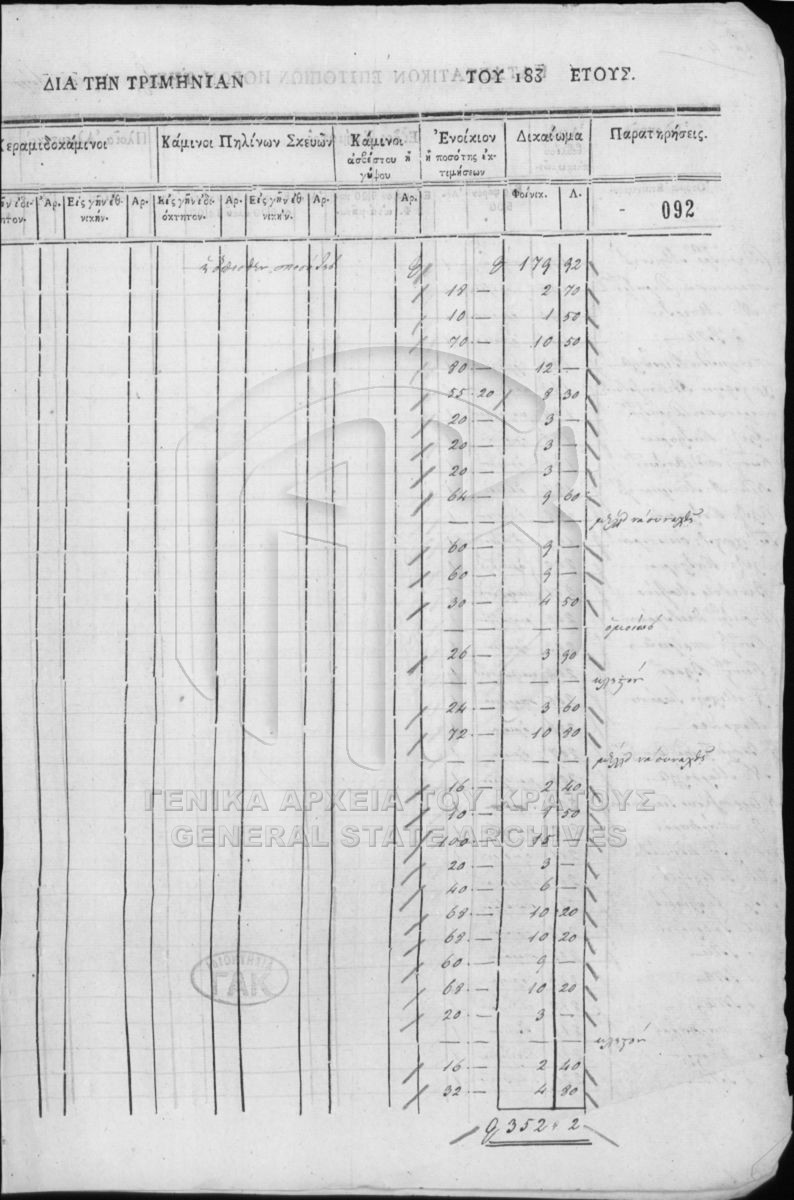 ΔΙΑ ΤΗΝ ΤΡΙΜΗΝΙΑΝ ΤΟΥ 183 ΕΤΟΥΣ.
Κεραμιδοκάμινοι Κάμινοι Πηλίνων Σκευῶν Κάμινοι ἀσβέστου ἢ γύψου Ἐνοίκιον ἢ ποσότης ἐκτιμήσεων Δικαίωμα Παρατηρήσεις.
Ἀρ. Εἰς γῆν ἐθνικήν. Ἀρ. Εἰς γῆν ἰδιόκτητον. Ἀρ. Εἰς γῆν ἐθνικήν. Ἀρ. Ἀρ. Φοίνικ. Λ.
092
179 92
18 — 2 70
10 — 1 50
70 — 10 50
80 — 12 —
55 20 8 30
20 — 3 —
20 — 3 —
20 — 3 —
64 — 9 60
— — — —
60 — 9 —
60 — 9 —
30 — 4 50
— — — — ὁμοίως
26 — 3 90
— — — —
24 — 3 60
72 — 10 80
— — — —
16 — 2 40
10 — 1 50
100 — 15 —
20 — 3 —
40 — 6 —
68 — 10 20
68 — 10 20
60 — 9 —
68 — 10 20
20 — 3 —
— — — —
16 — 2 40
32 — 4 80
352 2
ΓΕΝΙΚΑ ΑΡΧΕΙΑ ΤΟΥ ΚΡΑΤΟΥΣ
GENERAL STATE ARCHIVES
ΓΑΚ